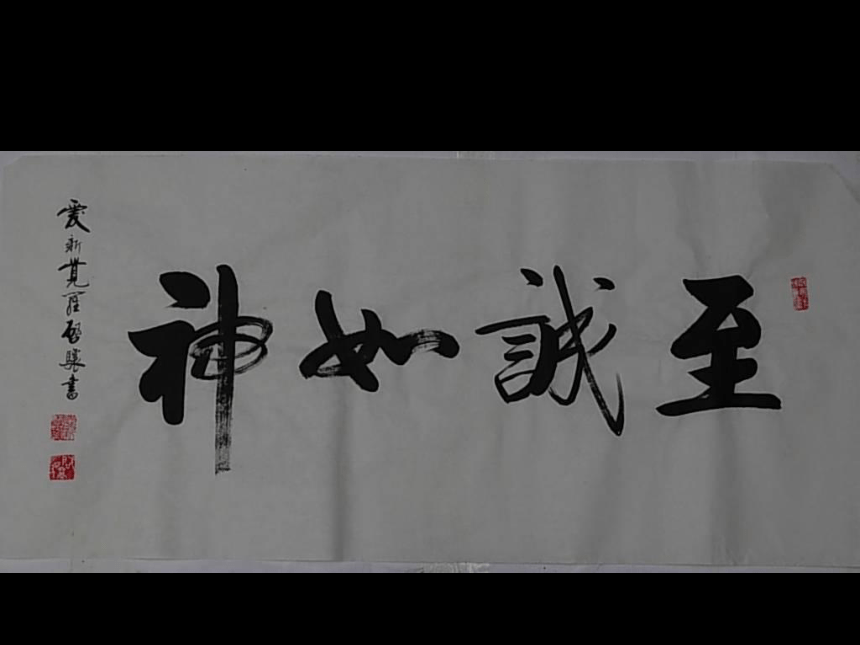 至誠如神
愛新覺羅啓驤書